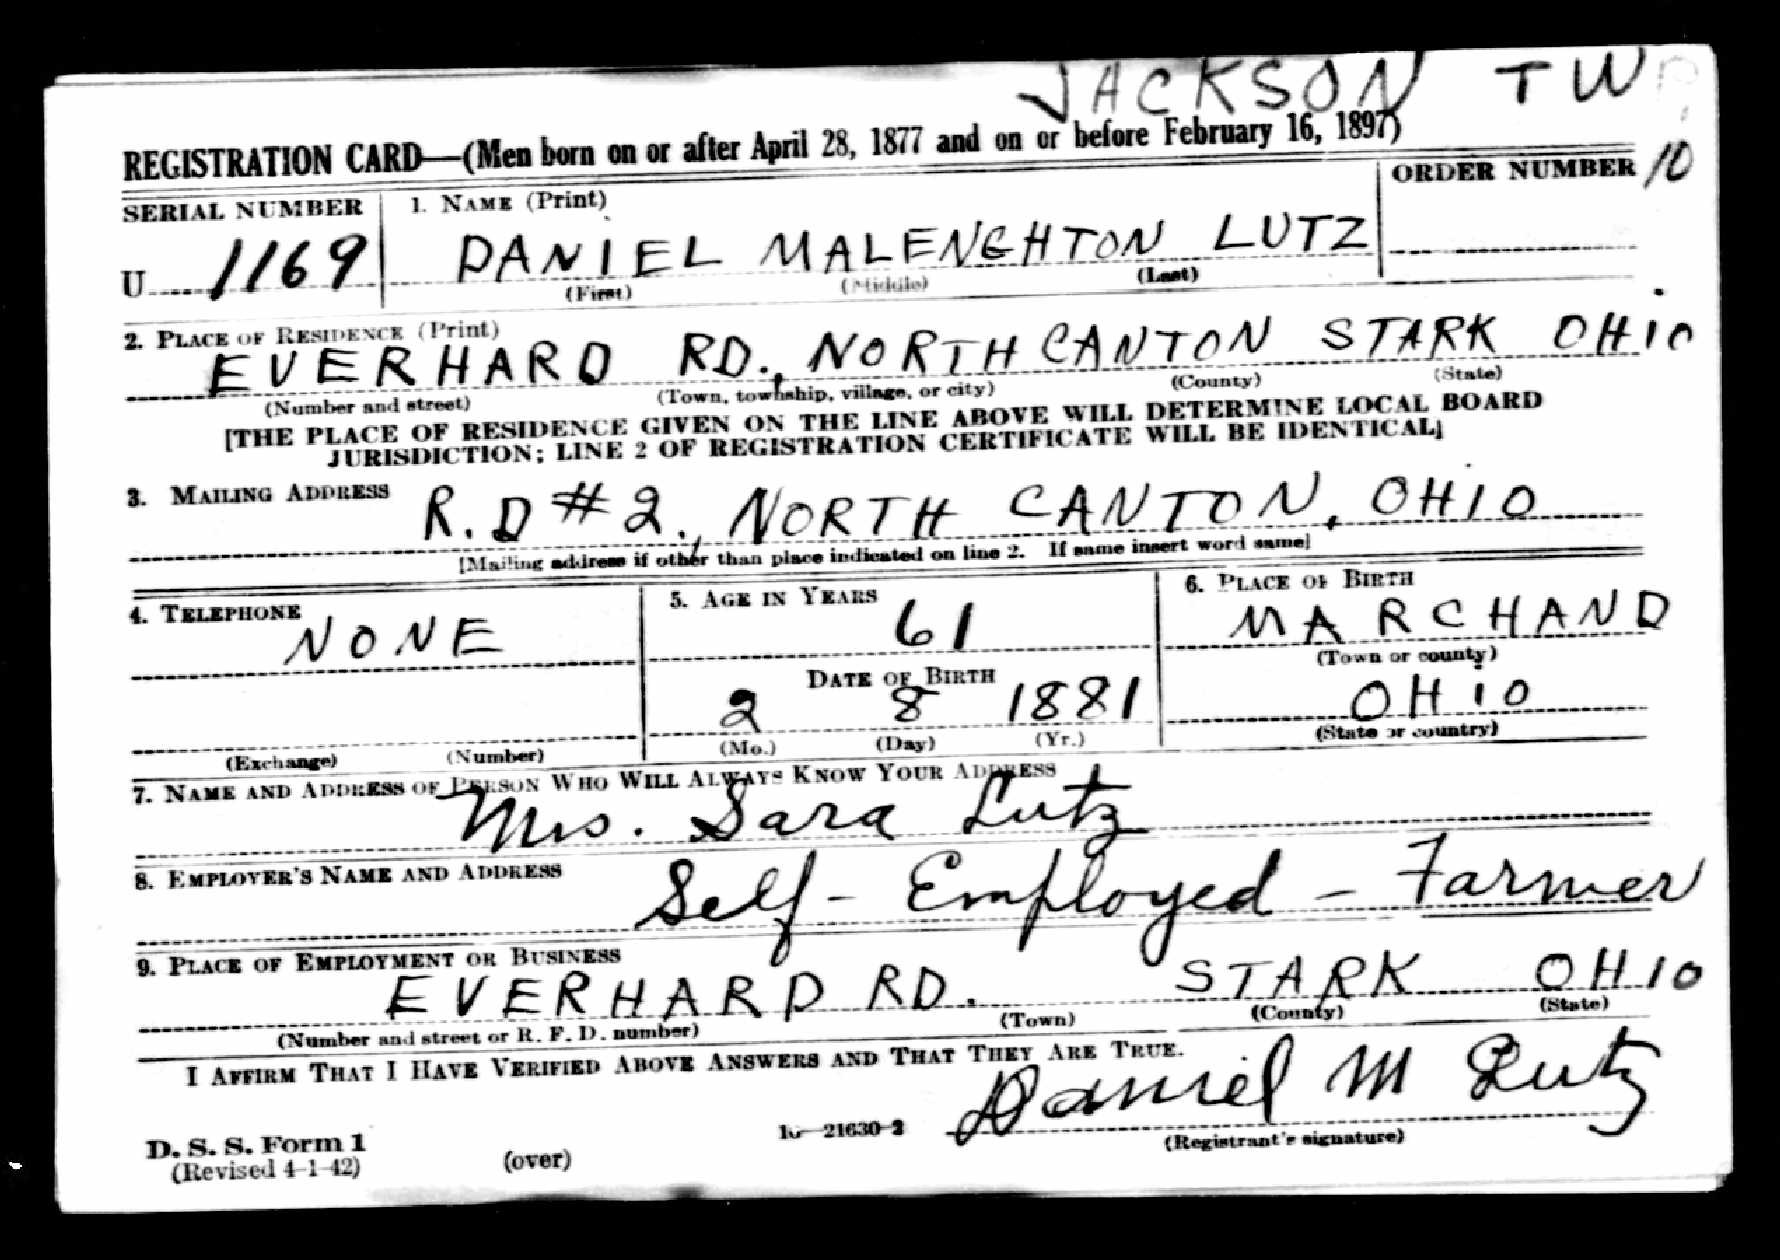 JACKSON TWP
REGISTRATION CARD—(Men born on or after April 28, 1877 and on or before February 16, 1897)
SERIAL NUMBER 1. NAME (Print) ORDER NUMBER 10
U 1169 DANIEL MALENGHTON LUTZ
(First) (Middle) (Last)
2. PLACE OF RESIDENCE (Print)
EVERHARD RD., NORTH CANTON STARK OHIO
(Number and street) (Town, township, village, or city) (County) (State)
[THE PLACE OF RESIDENCE GIVEN ON THE LINE ABOVE WILL DETERMINE LOCAL BOARD
JURISDICTION; LINE 2 OF REGISTRATION CERTIFICATE WILL BE IDENTICAL]
3. MAILING ADDRESS
R.D #2., NORTH CANTON, OHIO
[Mailing address if other than place indicated on line 2. If same insert word same]
4. TELEPHONE 5. AGE IN YEARS 6. PLACE OF BIRTH
NONE 61 MARCHAND
(Town or county)
DATE OF BIRTH
2 8 1881 OHIO
(Exchange) (Number) (Mo.) (Day) (Yr.) (State or country)
7. NAME AND ADDRESS OF PERSON WHO WILL ALWAYS KNOW YOUR ADDRESS
Mrs. Sara Lutz
8. EMPLOYER'S NAME AND ADDRESS
Self - Employed - Farmer
9. PLACE OF EMPLOYMENT OR BUSINESS
EVERHARD RD. STARK OHIO
(Number and street or R. F. D. number) (Town) (County) (State)
I AFFIRM THAT I HAVE VERIFIED ABOVE ANSWERS AND THAT THEY ARE TRUE.
Daniel M Lutz
D. S. S. Form 1 16—21630-2 (Registrant's signature)
(Revised 4-1-42) (over)